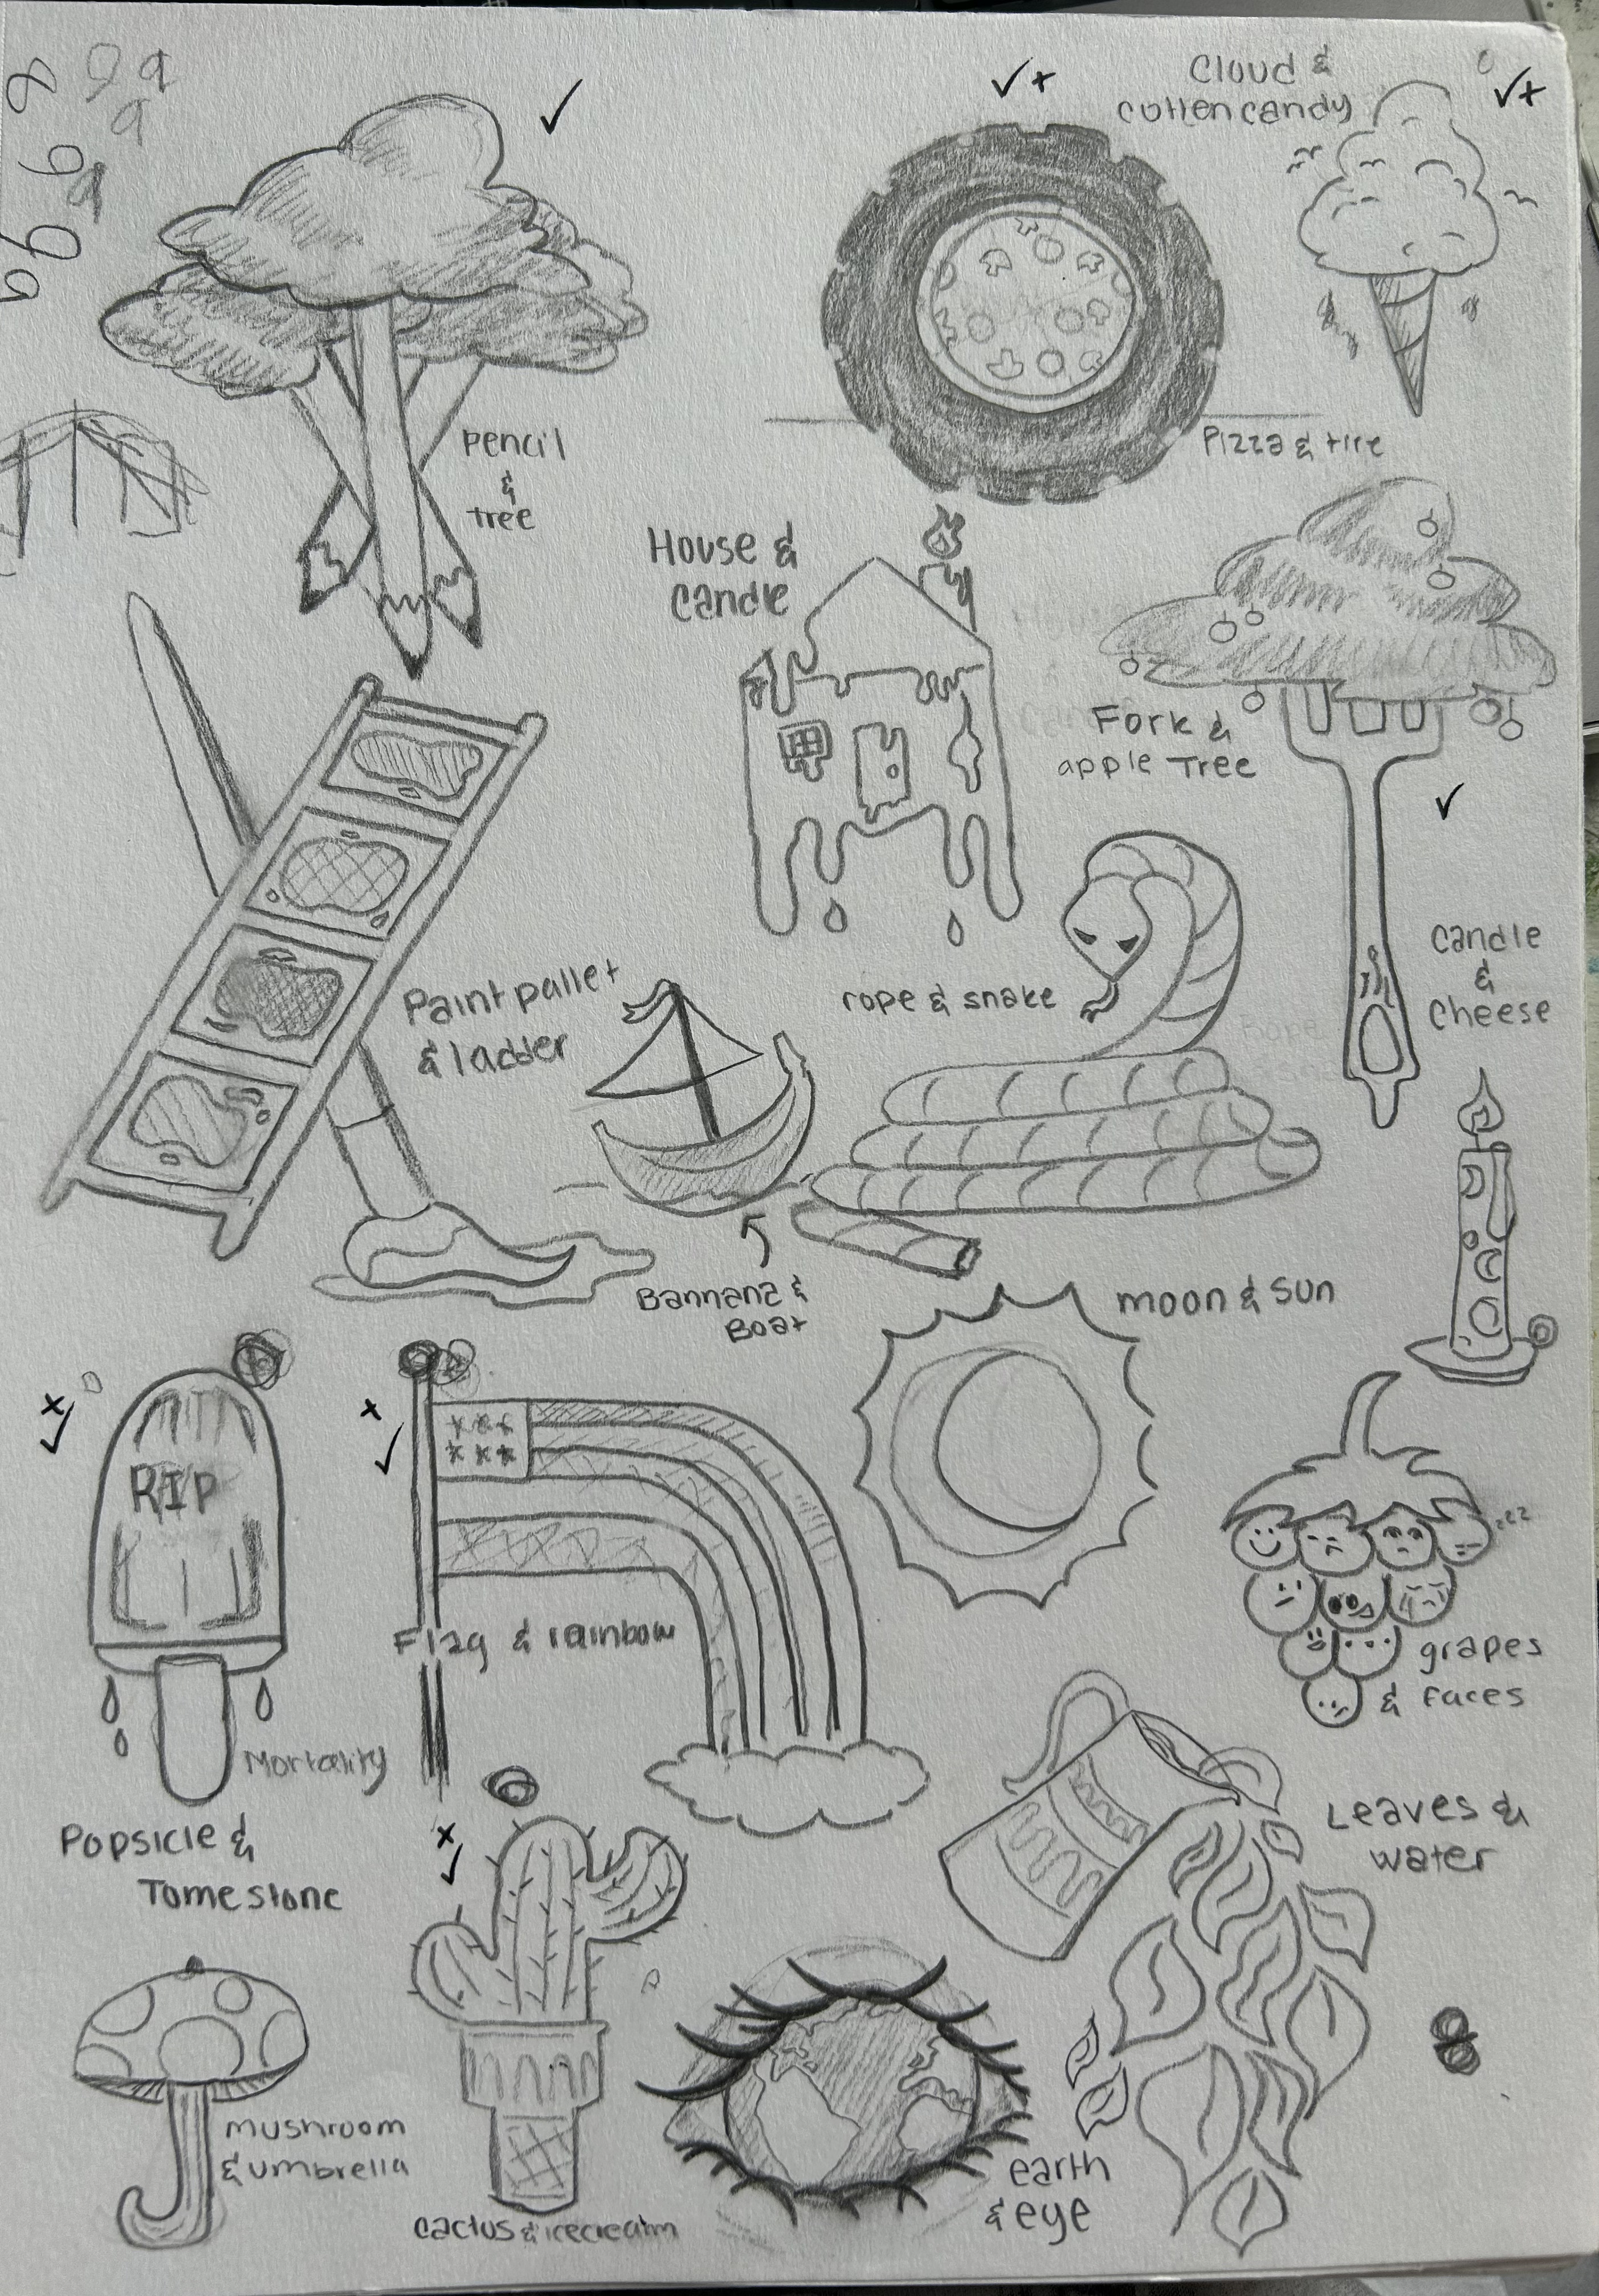 Cloud &
cotten candy
Pencil
&
tree
Pizza & tire
House &
Candle
Fork &
apple Tree
Paint pallet
& ladder
rope & snake
Candle
&
Cheese
Bannana &
Boat
moon & sun
RIP
Flag & rainbow
zzz
grapes
& faces
Mortality
Popsicle &
Tomestone
Leaves &
water
mushroom
& umbrella
cactus & icecream
earth
& eye